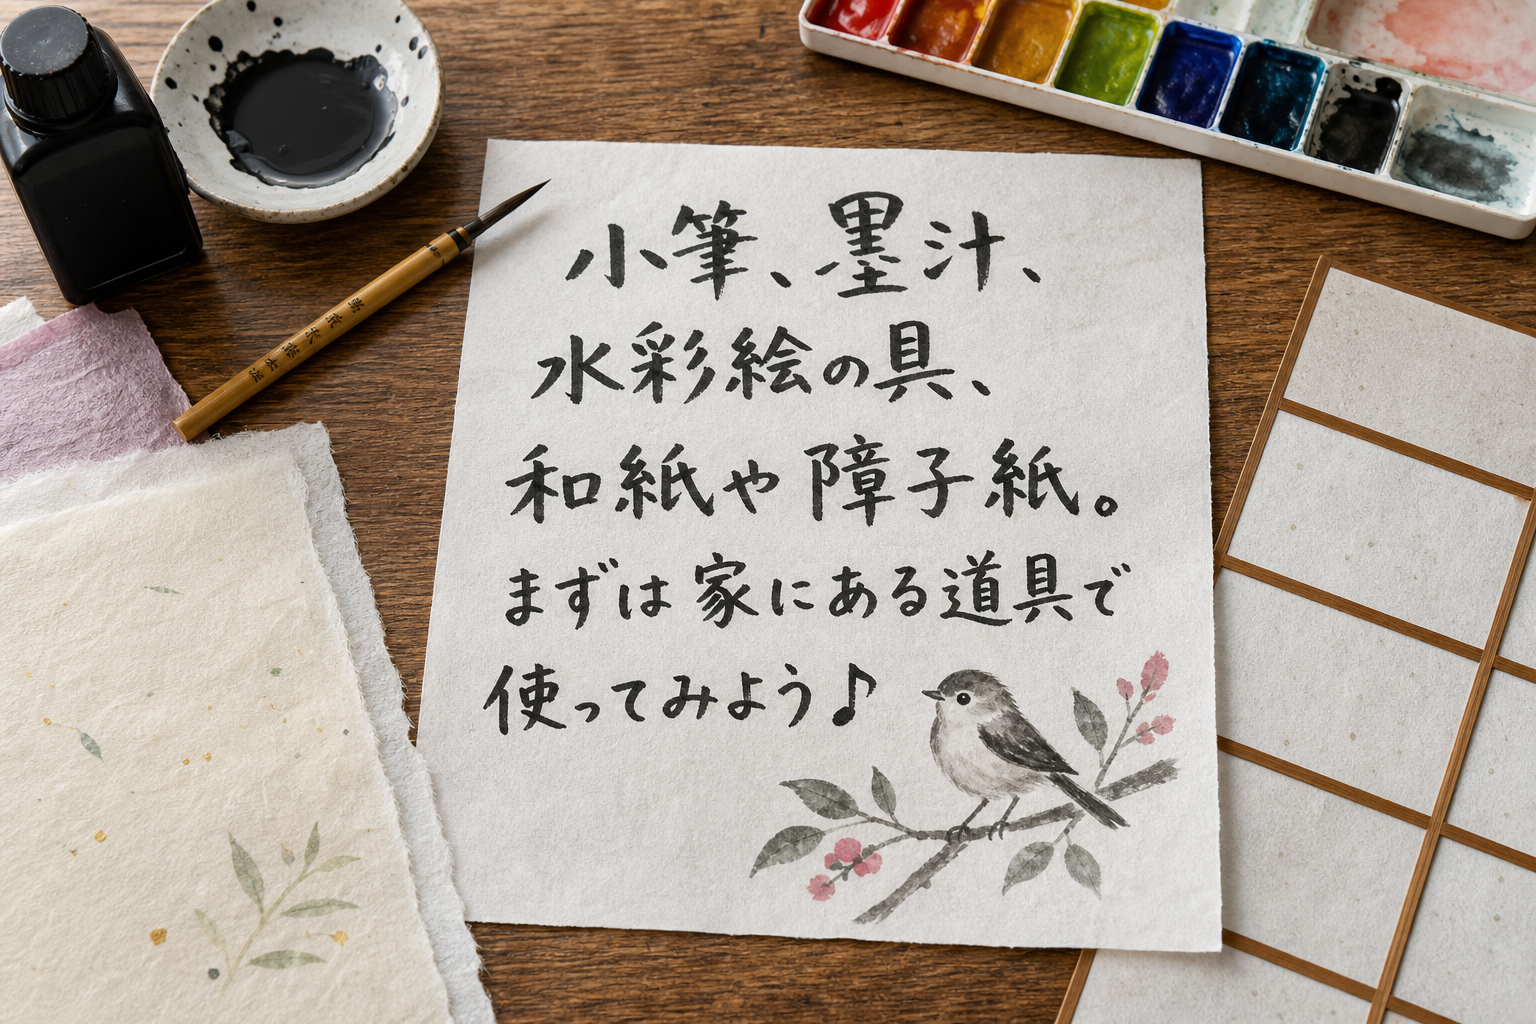 小筆、墨汁、
水彩絵の具、
和紙や障子紙。
まずは家にある道具で
使ってみよう♪